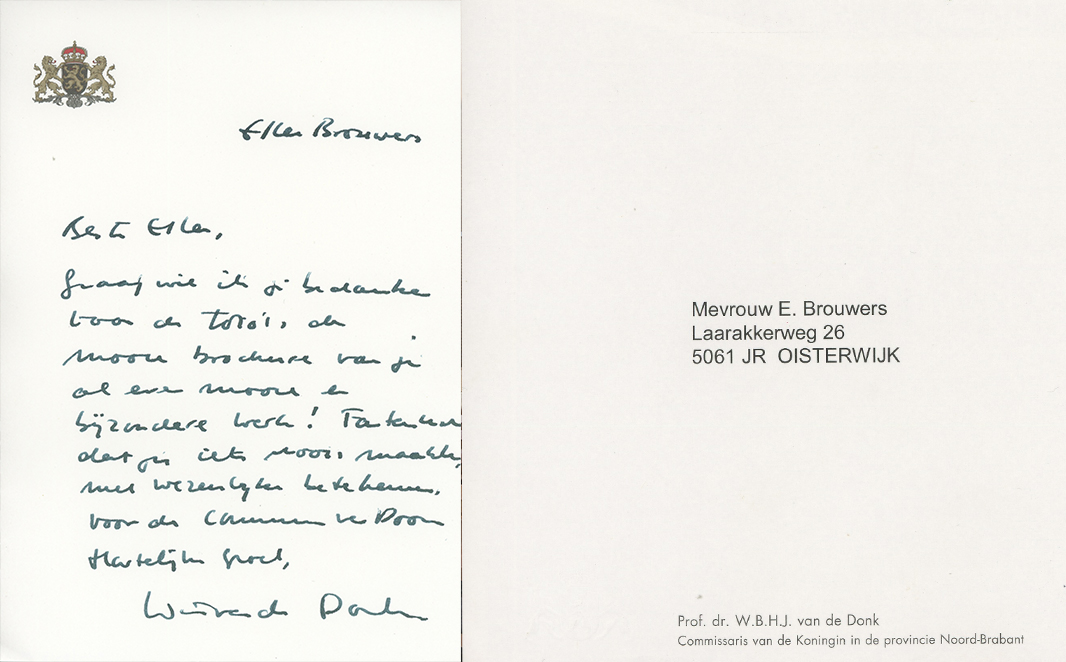 Ellen Brouwers
Beste Ellen,
Graag wil ik je bedanken
voor de foto's, de
mooie brochure van je
al even mooie en
bijzondere werk!
dat je iets moois maakt,
met wezenlijke betekenis.
voor de
Hartelijke groet,
Wim van de Donk
Mevrouw E. Brouwers
Laarakkerweg 26
5061 JR OISTERWIJK
Prof. dr. W.B.H.J. van de Donk
Commissaris van de Koningin in de provincie Noord-Brabant